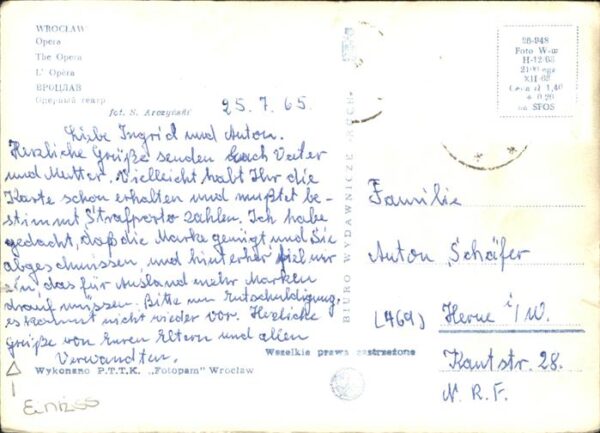 WROCŁAW
Opera
The Opera
L'Opéra
ВРОЦЛАВ
Оперный театр
fot. S. Arczyński
25.7.65.
Liebe Ingrid und Anton.
Herzliche Grüße senden Euch Vater
und Mutter. Vielleicht habt Ihr die
Karte schon erhalten und mußtet be-
stimmt Strafporto zahlen. Ich habe
gedacht, daß die Marke genügt und Sie
abgeschmissen, und hinterher fiel mir
ein, das für Ausland mehr Marken
drauf müssen. Bitte um Entschuldigung,
es kommt nicht wieder vor. Herzliche
Grüße von Euren Eltern und allen
Verwandten.
Wykonano P.T.T.K. „Fotopam" Wrocław
Wszelkie prawa zastrzeżone
BIURO WYDAWNICZE
26-948
Foto W-w
H-12-63
XII-63
Cena zł 1,40
+ 0,20
na SFOS
Familie
Anton Schäfer
(469) Herne i/W.
Kantstr. 28.
N.R.F.